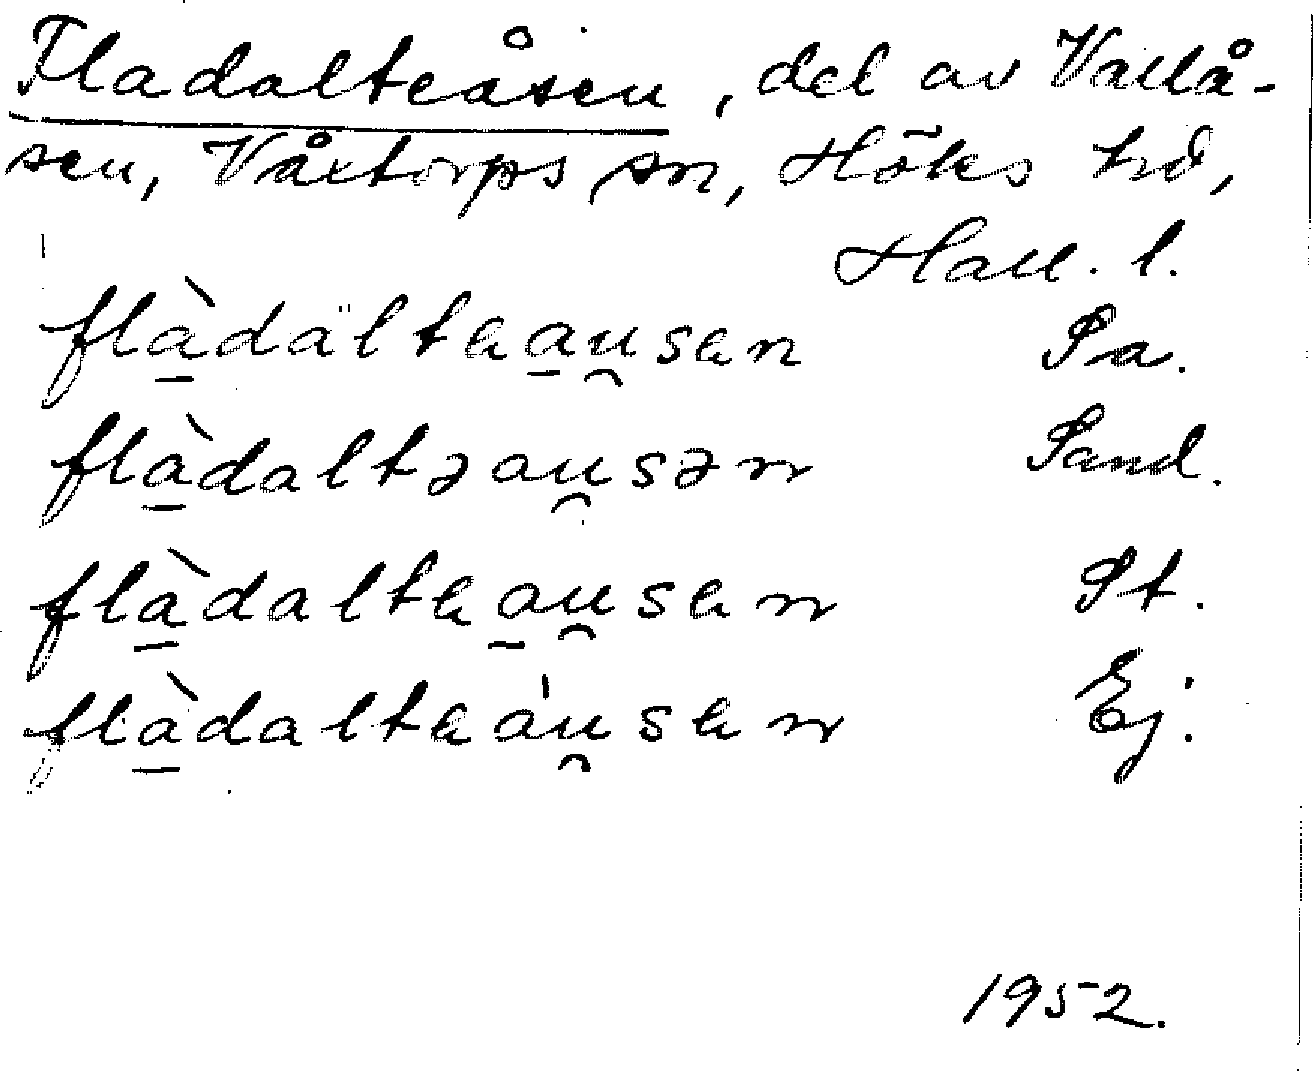 Fladalteåsen, del av Vallå-
sen, Våxtorps sn, Höks hd,
Hall. l.
flàdalteau̯sen Pa.
flàdaltəau̯sən Sand.
flàdalteau̯sen Pt.
flàdalteáu̯sen Ej.
1952.